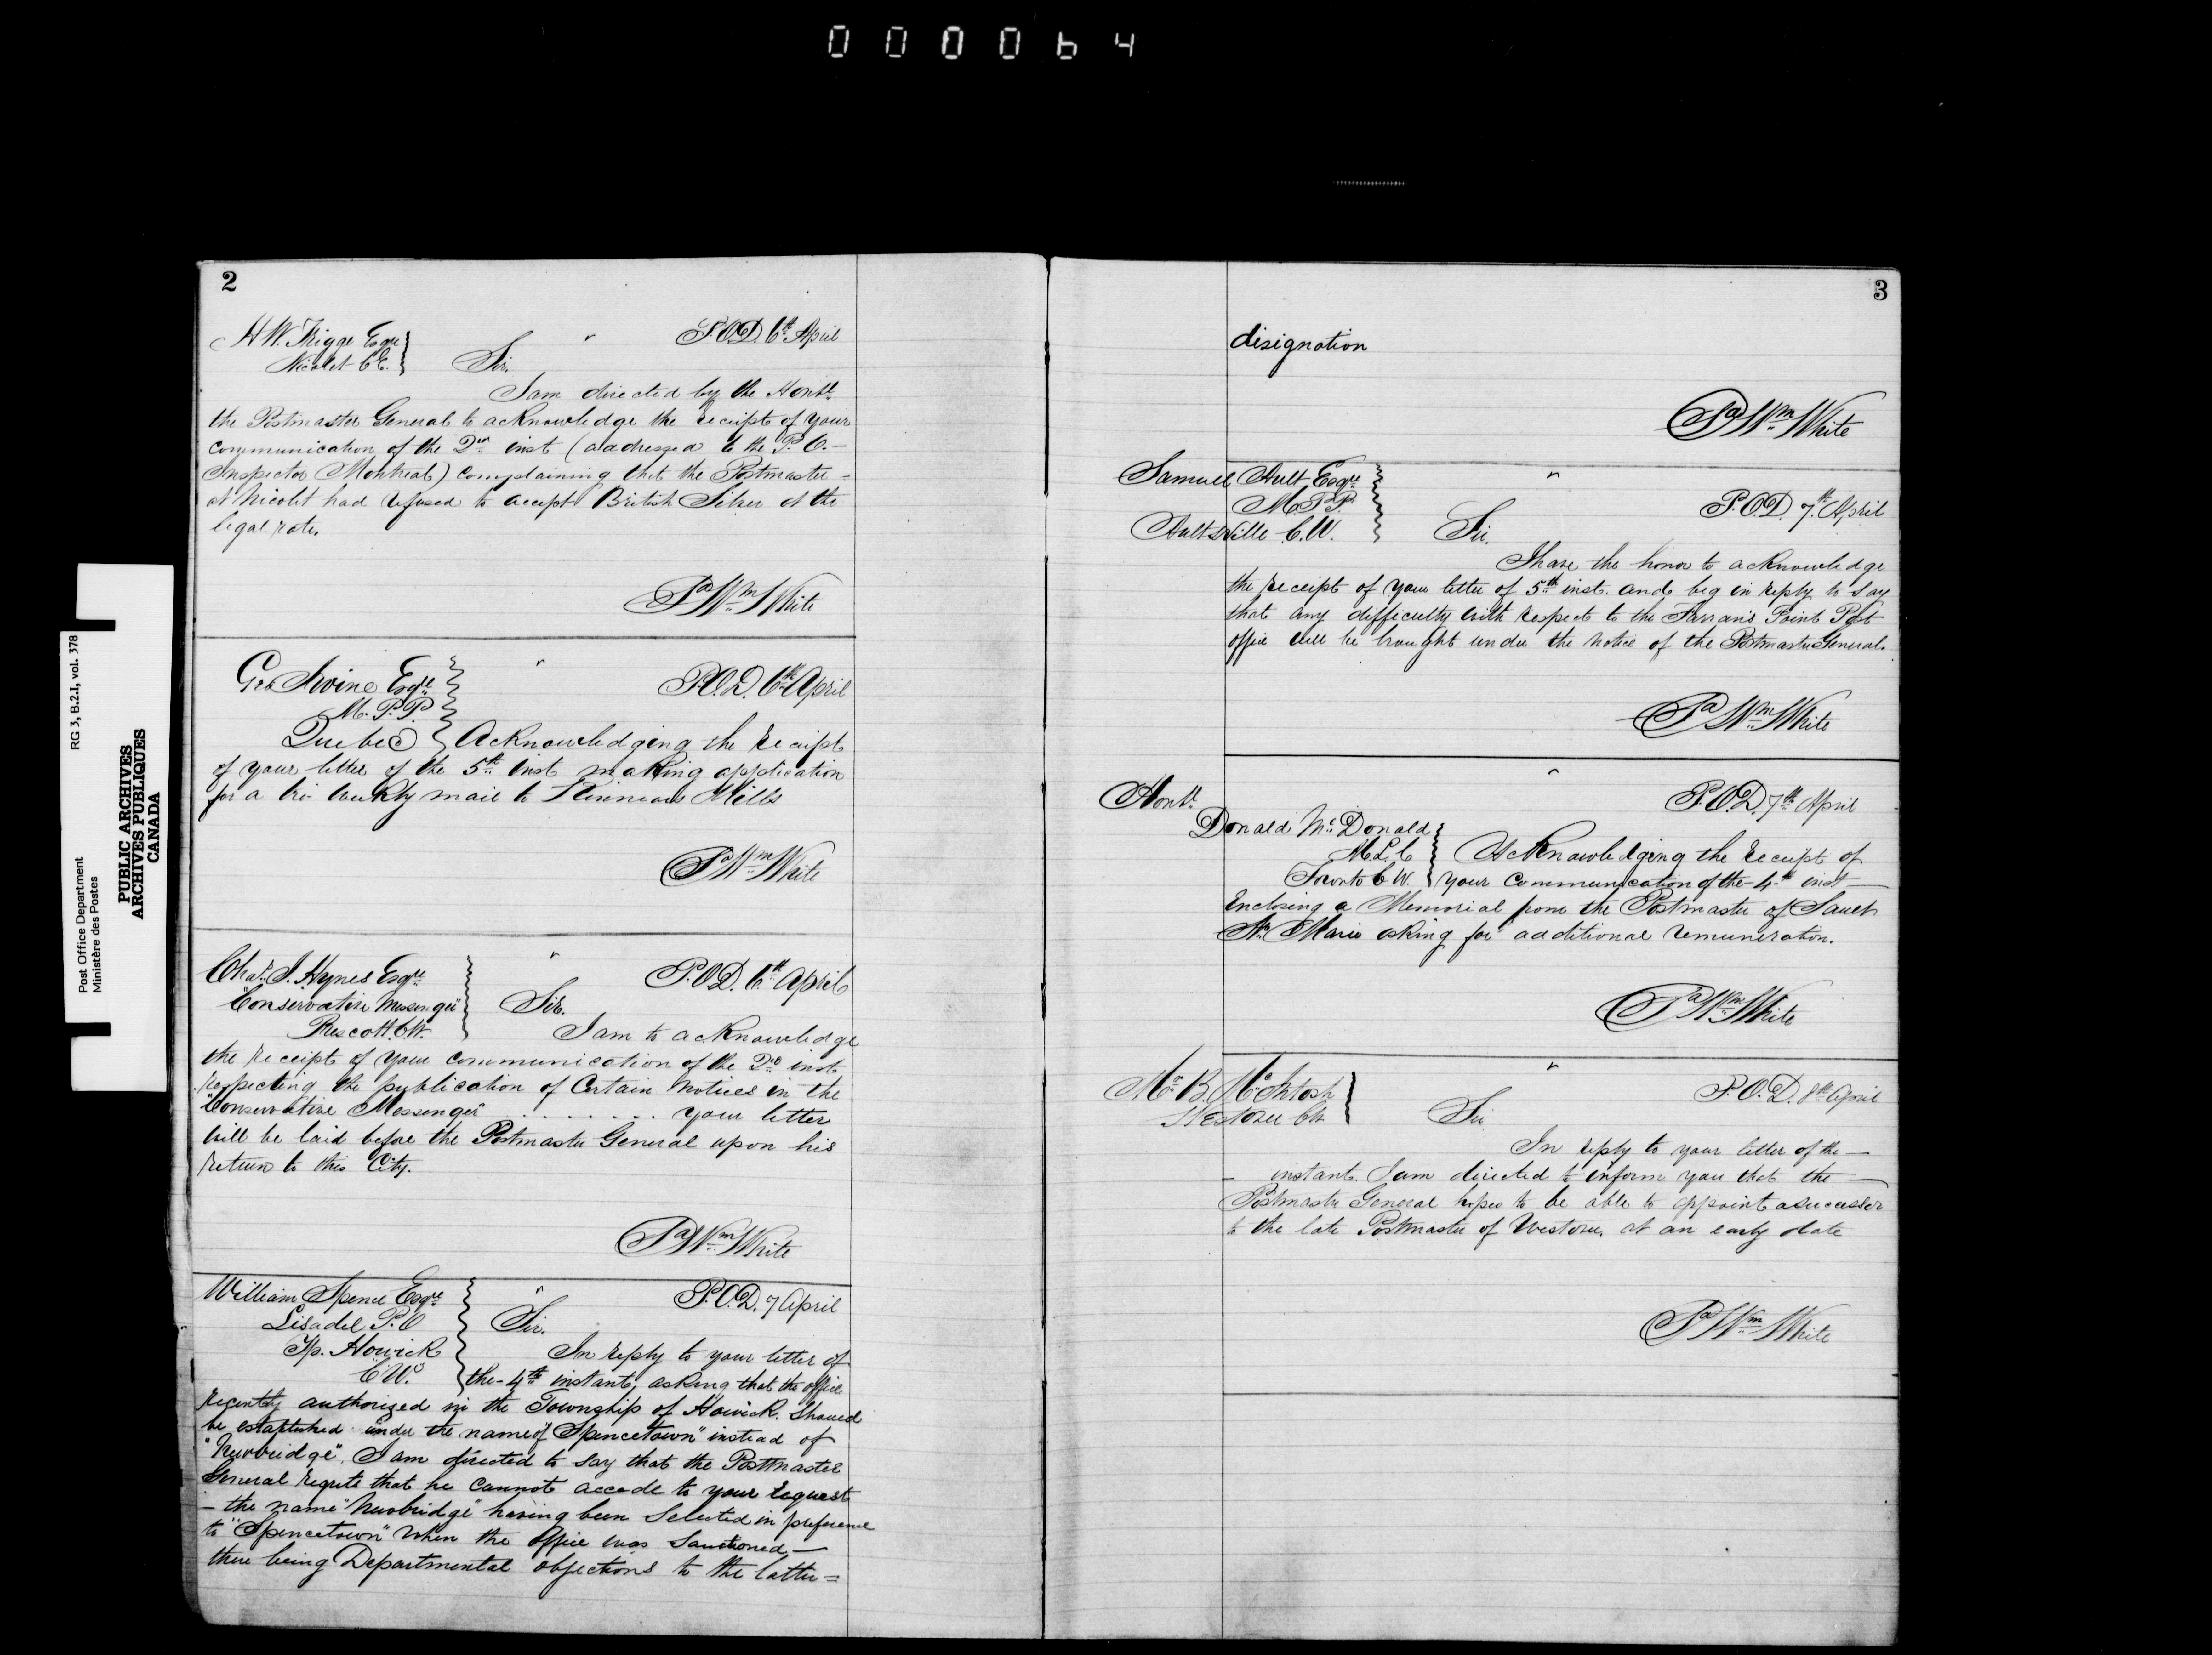 000064
2
H W. Trigge Esqre
Nicolet C E.
P.O.D. 6th April
Sir.
I am directed by the Honble
the Postmaster General to acknowledge the receipt of your
communication of the 2nd inst (addressed to the P. O. -
Inspector Montreal) complaining that the Postmaster -
at Nicolet had refused to accept British Silver at the
legal rate.
Pr Wm White
Geo Irvine Esqre
M. P. P.
Quebec
P.O.D. 6th April
Acknowledging the receipt
of your letter of the 5th inst making application
for a tri weekly mail to Mills
Pr Wm White
Chas. I. Hynes Esqre
"Conservative Messenger"
Prescott. C.W.
P.O.D. 6th April
Sir.
I am to acknowledge
the receipt of your communication of the 2nd inst
respecting the publication of Certain Notices in the
"Conservative Messenger" . . . . . . . . your letter
will be laid before the Postmaster General upon his
return to this City.
Pr Wm White
William Spence Esqre
Lisadel P. O
Tp. Howick
C W.
P.O.D. 7 April
Sir.
In reply to your letter of
the 4th instant, asking that the office
recently authorized in the Township of Howick. Should
be established under the name of "Spencetown" instead of
"Newbridge". I am directed to say that the Postmaster
General regrets that he cannot accede to your request
- the name "Newbridge" having been selected in preference
to "Spencetown" when the office was sanctioned -
there being Departmental objections to the latter =
3
disignation
Pr Wm White
Samuel Ault Esqre
M.P.P.
Aultsville C.W.
P.O.D. 7th April
Sir.
I have the honor to acknowledge
the receipt of your letter of 5th inst. and beg in reply to say
that any difficulty with respect to the Farran's Point Post
office will be brought under the notice of the Postmaster General.
Pr Wm White
Honble
Donald McDonald
M.L.C
Toronto C W.
P.O.D. 7th April
Acknowledging the receipt of
your Communication of the 4th inst -
Enclosing a Memorial from the Postmaster of Sault
Ste Marie asking for additional remuneration.
Pr Wm White
Mr B. McIntosh
Westover CW.
P.O.D. 8th April
Sir
In reply to your letter of the -
- instant. I am directed to inform you that the -
Postmaster General hopes to be able to appoint a successor
to the late Postmaster of Westover. at an early date
Pr Wm White
Post Office Department RG 3, B.2.I, vol. 378
Ministère des Postes
PUBLIC ARCHIVES
ARCHIVES PUBLIQUES
CANADA